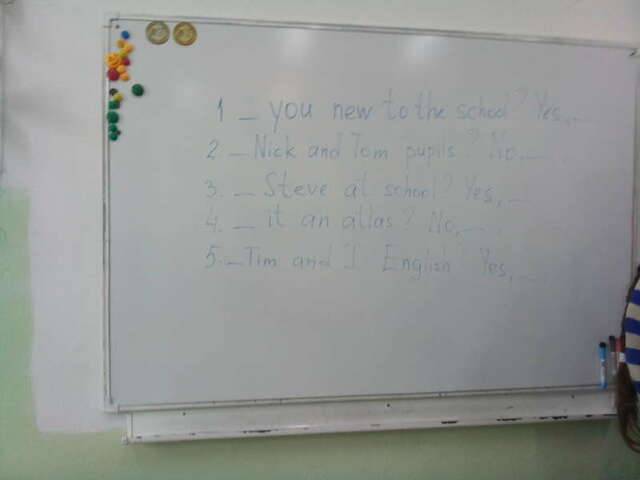 1 _ you new to the school? Yes, _
2. _ Nick and Tom pupils? No, _.
3. _ Steve at school? Yes, _
4. _ it an atlas? No, _.
5. _ Tim and I English? Yes, _.